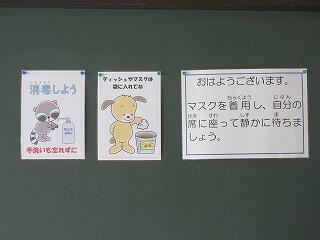 消毒しよう
手洗いも忘れずに
ティッシュやマスクは
袋に入れてね
おはようございます。
マスクを着用し、自分の
席に座って静かに待ちま
しょう。